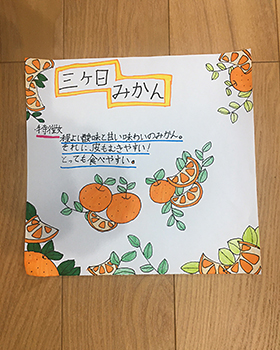 三ヶ日
みかん
特徴
程よい酸味と甘い味わいのみかん。
それに、皮もむきやすい!
とっても食べやすい。